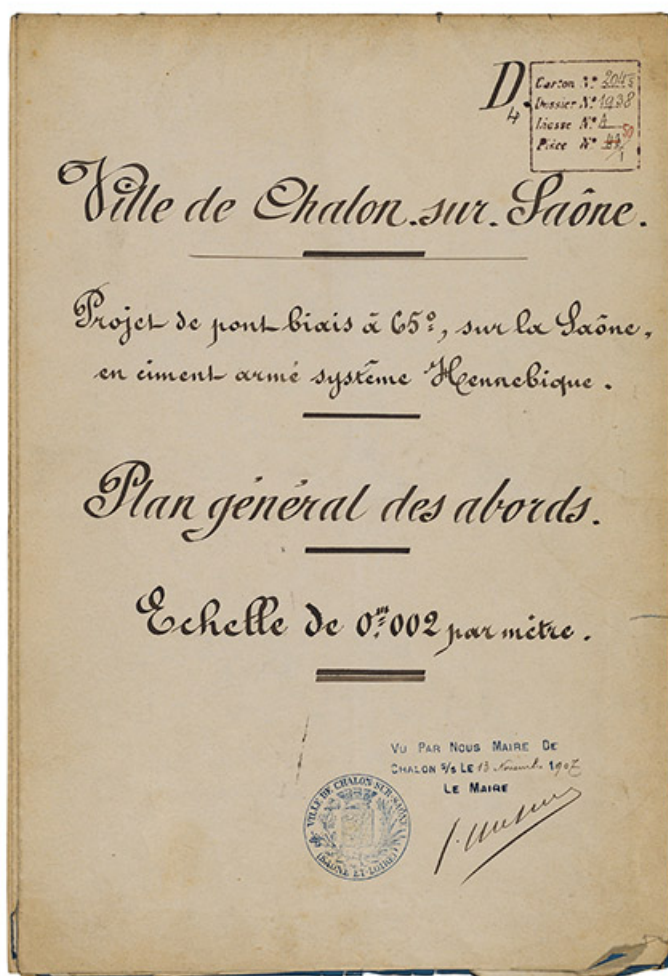 D.
4
Carton N° 2043
Dossier N° 1938
Liasse N° A
Pièce N° 44 50
1
Ville de Chalon.sur.Saône.
Projet de pont biais à 65°, sur la Saône,
en ciment armé système Hennebique.
Plan général des abords.
Echelle de 0.m002 par mètre.
VU PAR NOUS MAIRE DE
CHALON S/S LE 13 Novembre 1907
LE MAIRE
VILLE DE CHALON-SUR-SAÔNE
(SAÔNE ET-LOIRE)